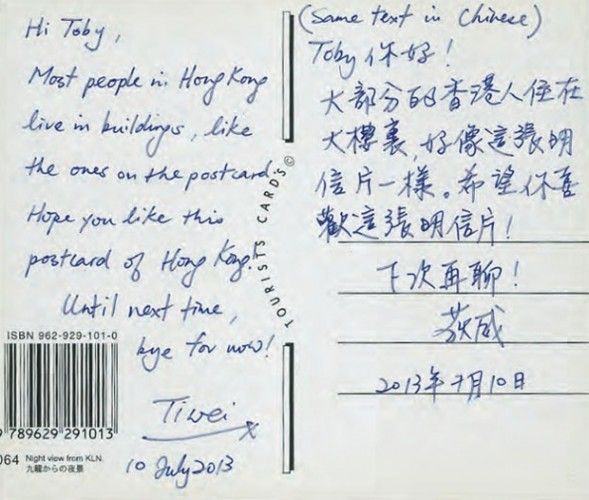 Hi Toby,
Most people in Hong Kong
live in buildings, like
the ones on the postcard.
Hope you like this
postcard of Hong Kong.
Until next time,
bye for now!
Tiwei x
10 July 2013
ISBN 962-929-101-0
9 789629 291013
064 Night view from KLN.
九龍からの夜景
TOURISTS CARDS ©
(Same text in Chinese)
Toby 你好!
大部分的香港人住在
大樓裏,好像這張明
信片一樣。希望你喜
歡這張明信片!
下次再聊!
荻威
2013年7月10日